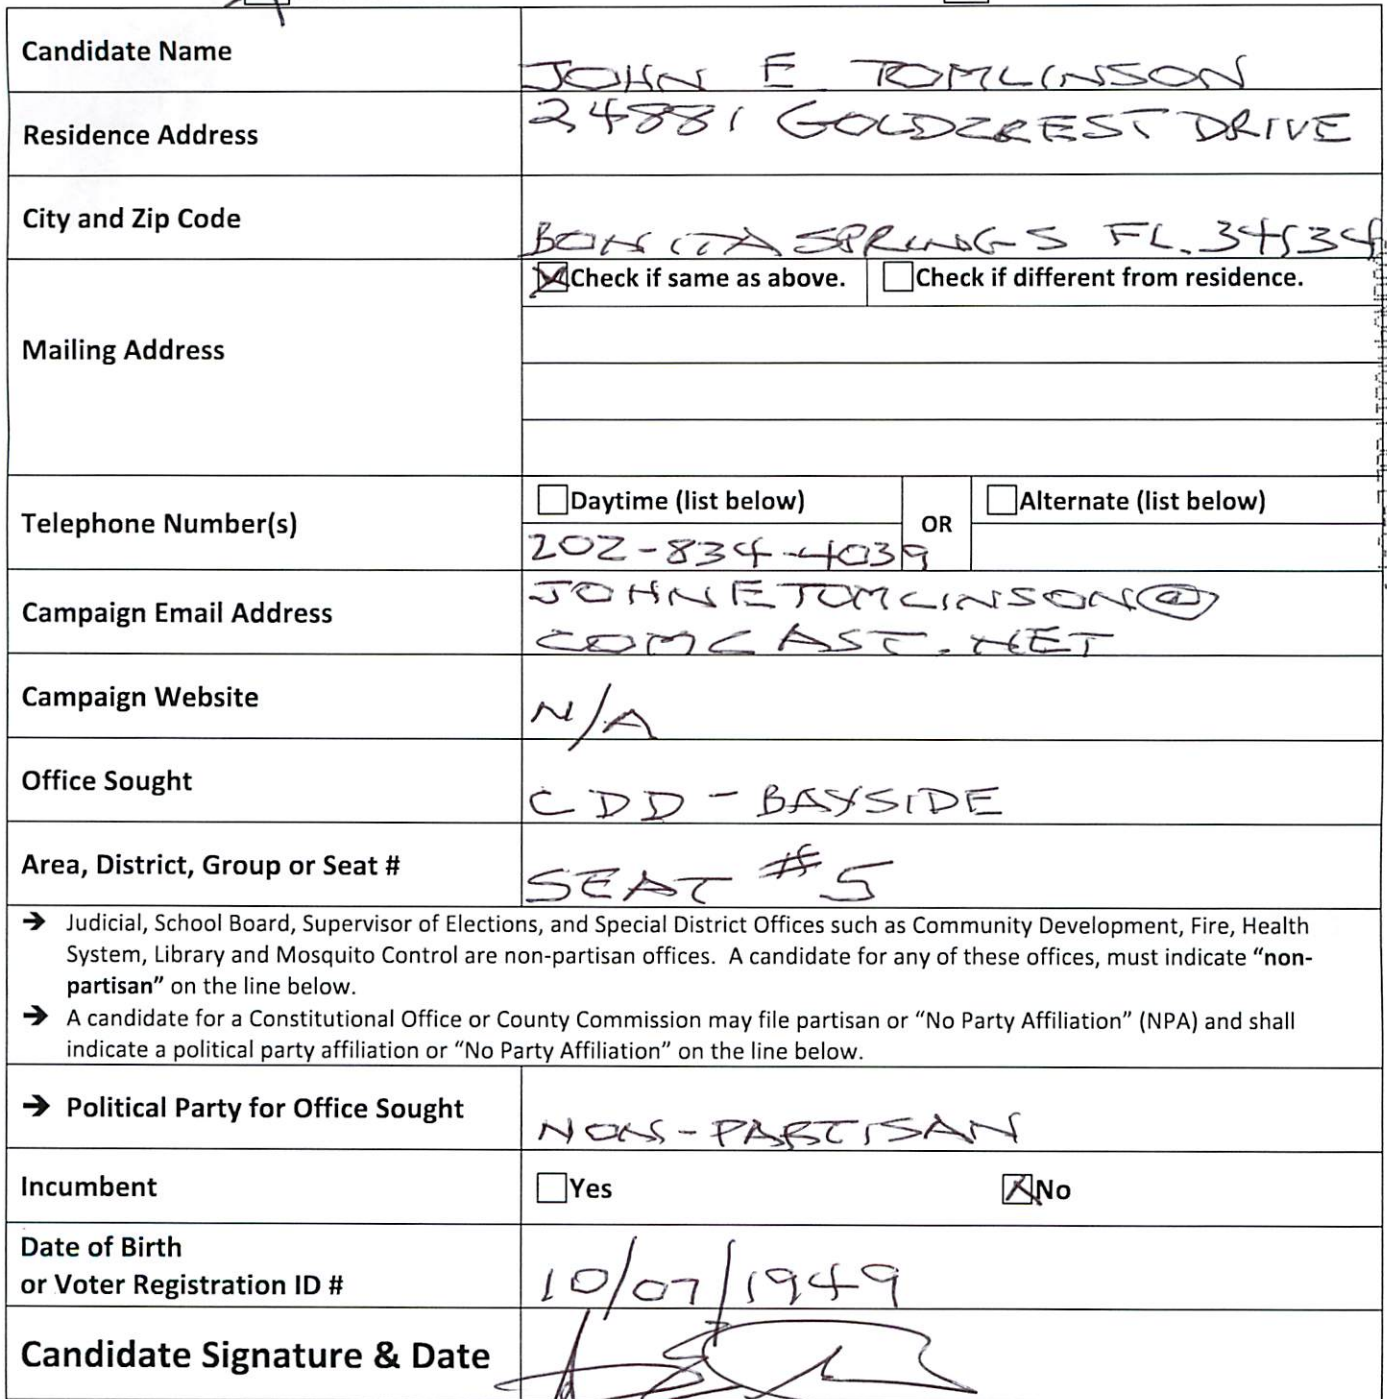 Candidate Name
JOHN E TOMLINSON
Residence Address
24881 GOLDCREST DRIVE
City and Zip Code
BONITA SPRINGS FL. 34134
Mailing Address
Check if same as above.
Check if different from residence.
Telephone Number(s)
Daytime (list below)
OR
Alternate (list below)
202-834-4039
Campaign Email Address
JOHNETOMLINSON@
COMCAST.NET
Campaign Website
N/A
Office Sought
CDD - BAYSIDE
Area, District, Group or Seat #
SEAT #5
→ Judicial, School Board, Supervisor of Elections, and Special District Offices such as Community Development, Fire, Health
System, Library and Mosquito Control are non-partisan offices. A candidate for any of these offices, must indicate “non-
partisan” on the line below.
→ A candidate for a Constitutional Office or County Commission may file partisan or “No Party Affiliation” (NPA) and shall
indicate a political party affiliation or “No Party Affiliation” on the line below.
→ Political Party for Office Sought
NON-PARTISAN
Incumbent
Yes
No
Date of Birth
or Voter Registration ID #
10/07/1949
Candidate Signature & Date